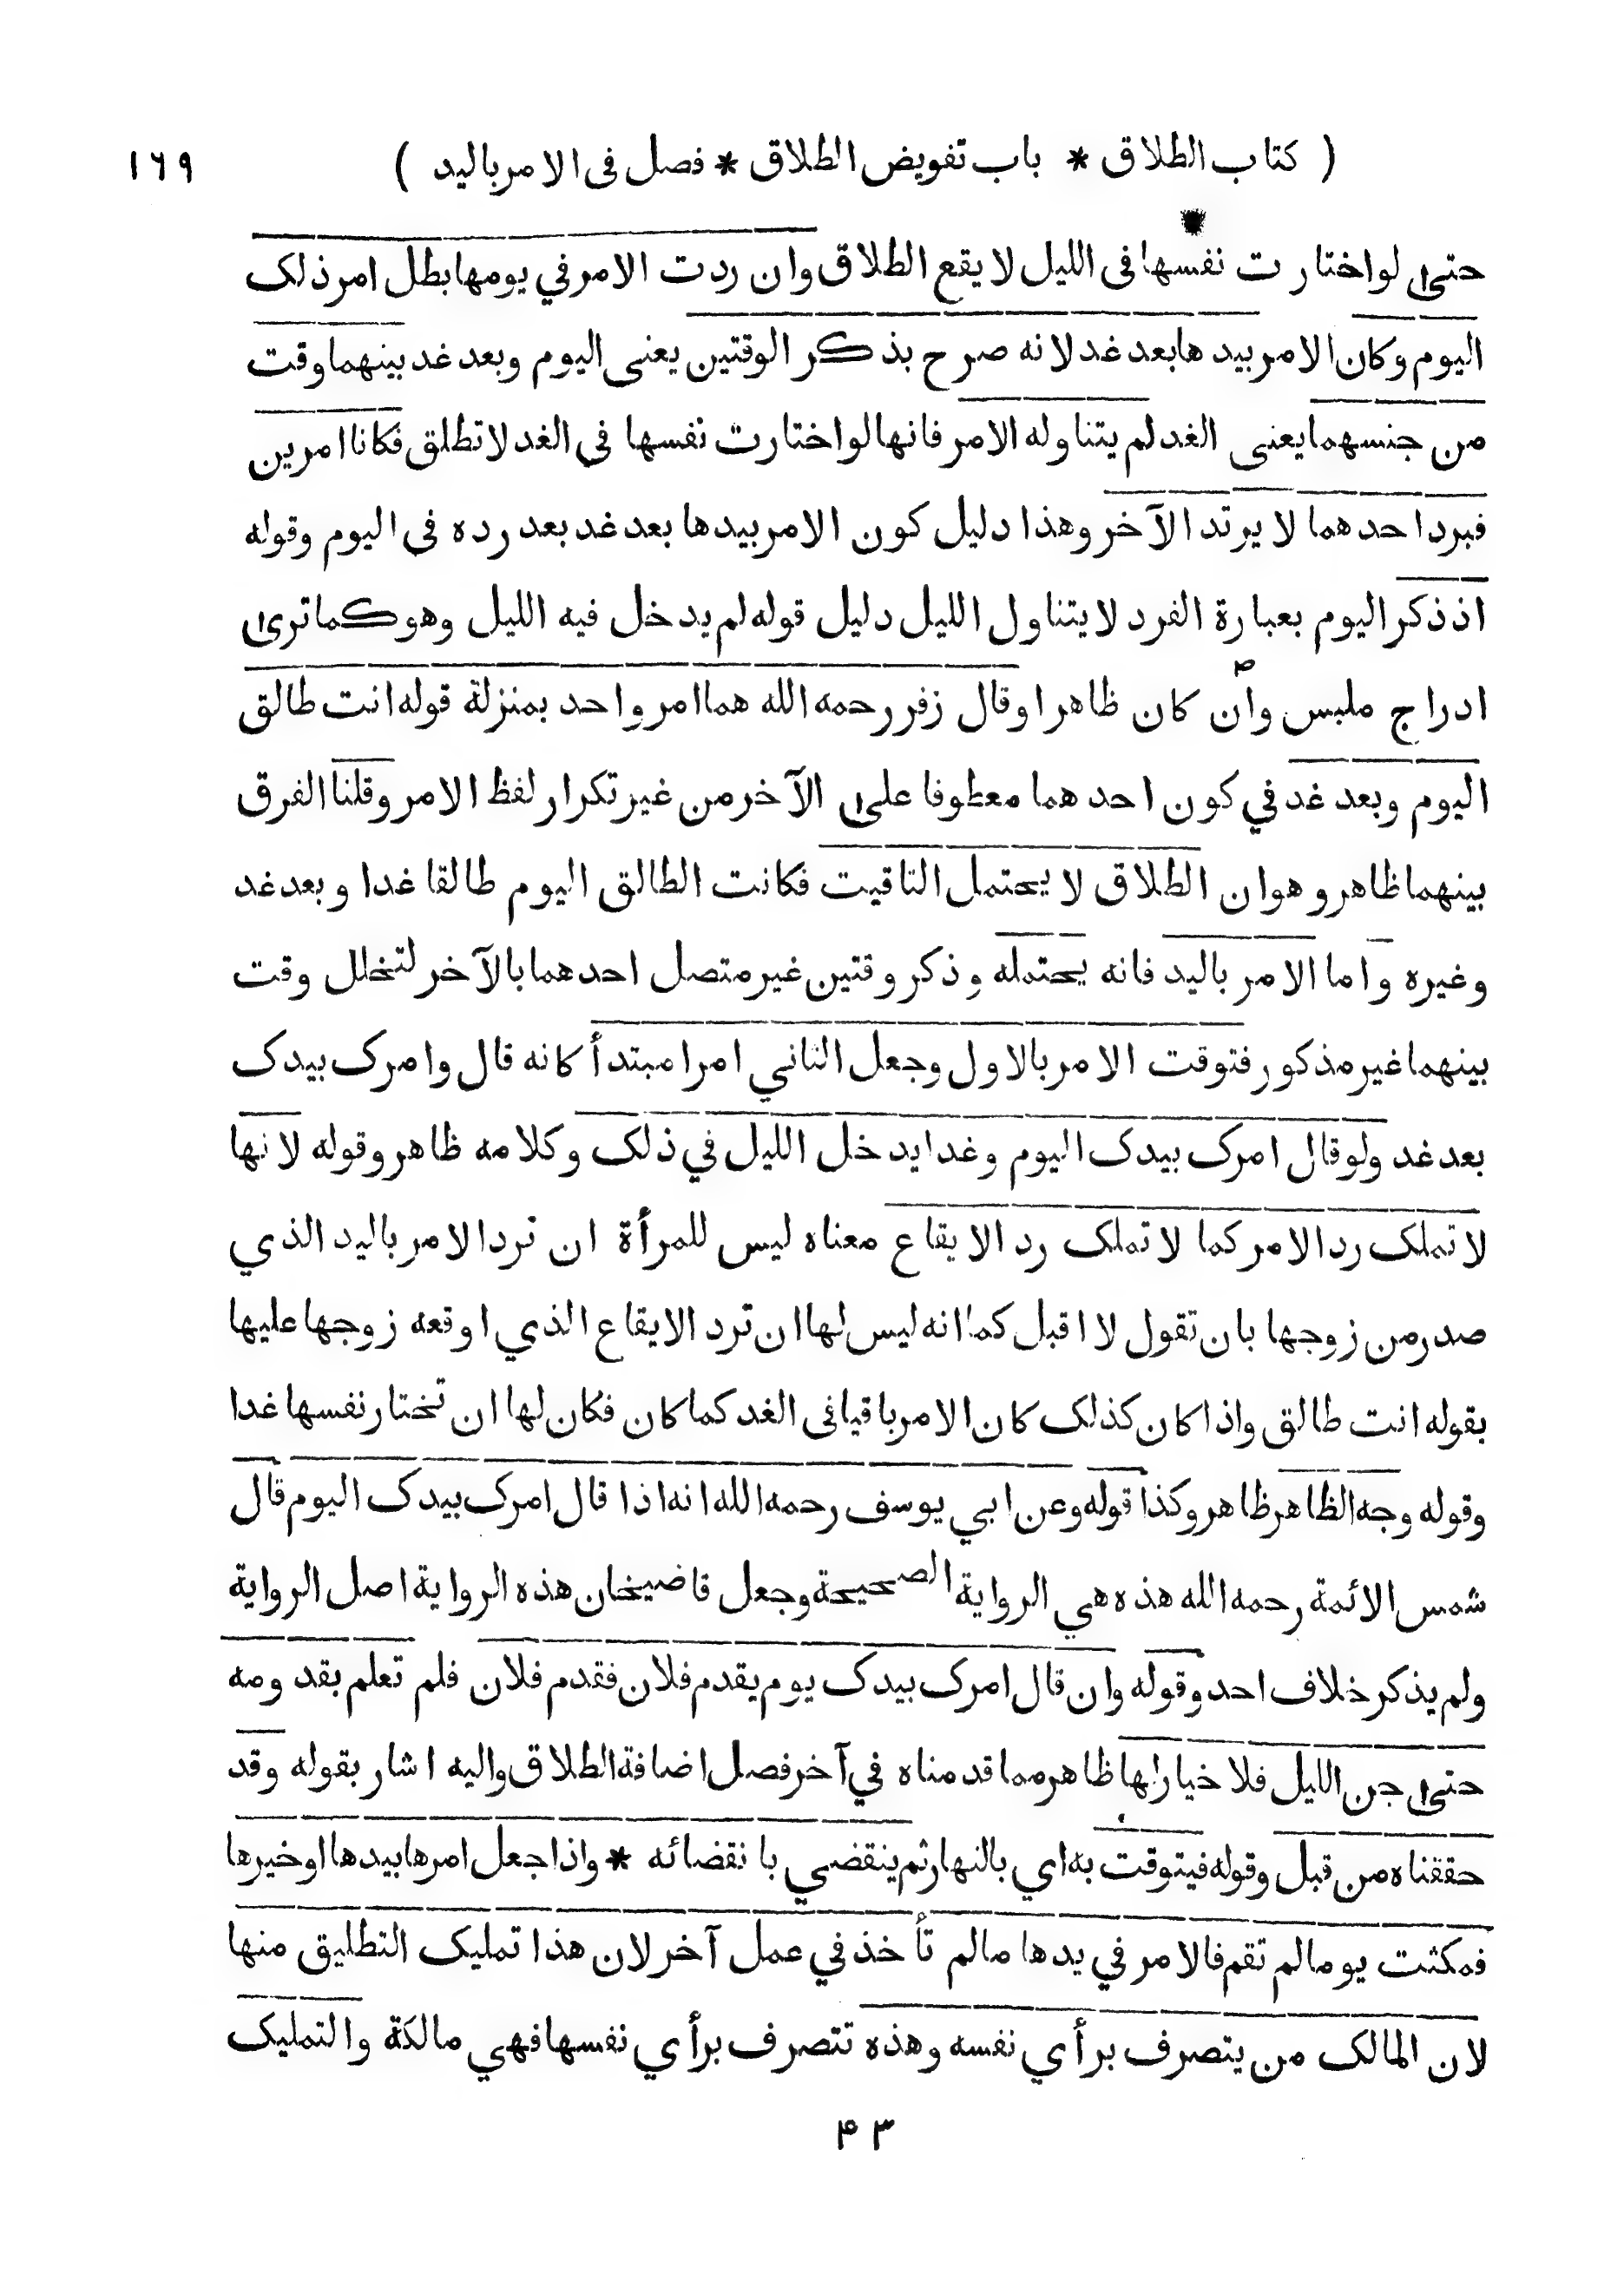 ( كتاب الطلاق * باب تفويض الطلاق * فصل فى الامر باليد ) ١٦٩
حتى لو اختارت نفسها فى الليل لا يقع الطلاق وان ردت الامر في يومها بطل امر ذلک
اليوم وكان الامر بيدها بعد غد لانه صرح بذكر الوقتين يعنى اليوم وبعد غد بينهما وقت
من جنسهما يعنى الغد لم يتناوله الامر فانها لو اختارت نفسها في الغد لا تطلق فكانا امرين
فبرد احدهما لا يرتد الآخر وهذا دليل كون الامر بيدها بعد غد بعد رده فى اليوم وقوله
اذ ذكر اليوم بعبارة الفرد لا يتناول الليل دليل قوله لم يدخل فيه الليل وهو كما ترى
ادراج ملبس وان كان ظاهرا وقال زفر رحمه الله هما امر واحد بمنزلة قوله انت طالق
اليوم وبعد غد في كون احدهما معطوفا على الآخر من غير تكرار لفظ الامر وقلنا الفرق
بينهما ظاهر وهو ان الطلاق لا يحتمل التاقيت فكانت الطالق اليوم طالقا غدا وبعد غد
وغيره واما الامر باليد فانه يحتمله وذكر وقتين غير متصل احدهما بالآخر لتخلل وقت
بينهما غير مذكور فتوقت الامر بالاول وجعل الثاني امرا مبتدأ كانه قال وامرک بيدک
بعد غد ولو قال امرک بيدک اليوم وغدا يدخل الليل في ذلک وكلامه ظاهر وقوله لانها
لا تملک رد الامر كما لا تملک رد الايقاع معناه ليس للمرأة ان ترد الامر باليد الذي
صدر من زوجها بان تقول لا اقبل كما انه ليس لها ان ترد الايقاع الذي اوقعه زوجها عليها
بقوله انت طالق واذا كان كذلک كان الامر باقيا فى الغد كما كان فكان لها ان تختار نفسها غدا
وقوله وجه الظاهر ظاهر وكذا قوله وعن ابي يوسف رحمه الله انه اذا قال امرک بيدک اليوم قال
شمس الائمة رحمه الله هذه هي الرواية الصحيحة وجعل قاضيخان هذه الرواية اصل الرواية
ولم يذكر خلاف احد وقوله وان قال امرک بيدک يوم يقدم فلان فقدم فلان فلم تعلم بقدومه
حتى جن الليل فلا خيار لها ظاهر مما قدمناه في آخر فصل اضافة الطلاق واليه اشار بقوله وقد
حققناه من قبل وقوله فيتوقت به اي بالنهار ثم ينقضي بانقضائه * واذا جعل امرها بيدها او خيرها
فمكثت يوما لم تقم فالامر في يدها ما لم تأخذ في عمل آخر لان هذا تمليک التطليق منها
لان المالک من يتصرف برأي نفسه وهذه تتصرف برأي نفسها فهي مالكة والتمليک
۴۳